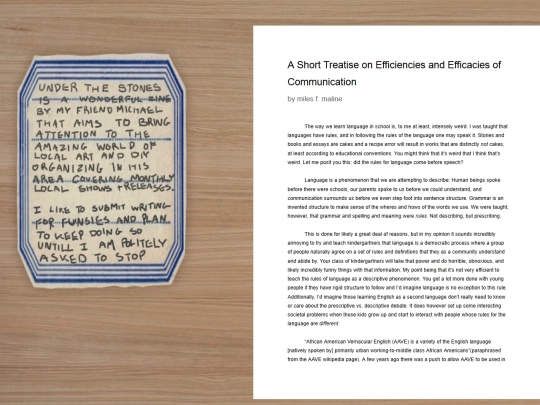 UNDER THE STONES
IS A WONDERFUL ZINE
BY MY FRIEND MICHAEL
THAT AIMS TO BRING
ATTENTION TO THE
AMAZING WORLD OF
LOCAL ART AND DIY
ORGANIZING IN THIS
AREA COVERING MONTHLY
LOCAL SHOWS + RELEASES.
I LIKE TO SUBMIT WRITING
FOR FUNSIES AND PLAN
TO KEEP DOING SO
UNTILL I AM POLITELY
ASKED TO STOP
A Short Treatise on Efficiencies and Efficacies of
Communication
by miles f. maline
The way we learn language in school is, to me at least, intensely weird. I was taught that
languages have rules, and in following the rules of the language one may speak it. Stories and
books and essays are cakes and a recipe error will result in works that are distinctly not cakes,
at least according to educational conventions. You might think that it's weird that I think that's
weird. Let me posit you this: did the rules for language come before speech?
Language is a phenomenon that we are attempting to describe. Human beings spoke
before there were schools, our parents spoke to us before we could understand, and
communication surrounds us before we even step foot into school. Grammar is an
invented structure to make sense of the wheres and hows of the words we use. We were taught,
however, that grammar and spelling and meaning were rules. Not describing, but prescribing.
This is done for likely a great deal of reasons, but in my opinion it sounds incredibly
annoying to try and teach kindergartners that language is a democratic process where a group
of people naturally agree on a set of rules and definitions that they as a community understand
and abide by. Your class of kindergartners will take that power and do horrible, obnoxious, and
likely incredibly funny things with that information. My point being that it's not very efficient to
teach the rules of language as a descriptive phenomenon. You get a lot more done with young
people if they have rigid structure to follow and I'd imagine language is no exception to this rule.
Additionally, I'd imagine those learning English as a second language don't really need to know
or care about the prescriptive vs. descriptive debate. It does however set up some interesting
societal problems when those kids grow up and start to interact with people whose rules for the
language are different.
"African American Vernacular English (AAVE) is a variety of the English language
[natively spoken by] primarily urban working-to-middle class African Americans"(paraphrased
from the AAVE wikipedia page). A few years ago there was a push to allow AAVE to be used in